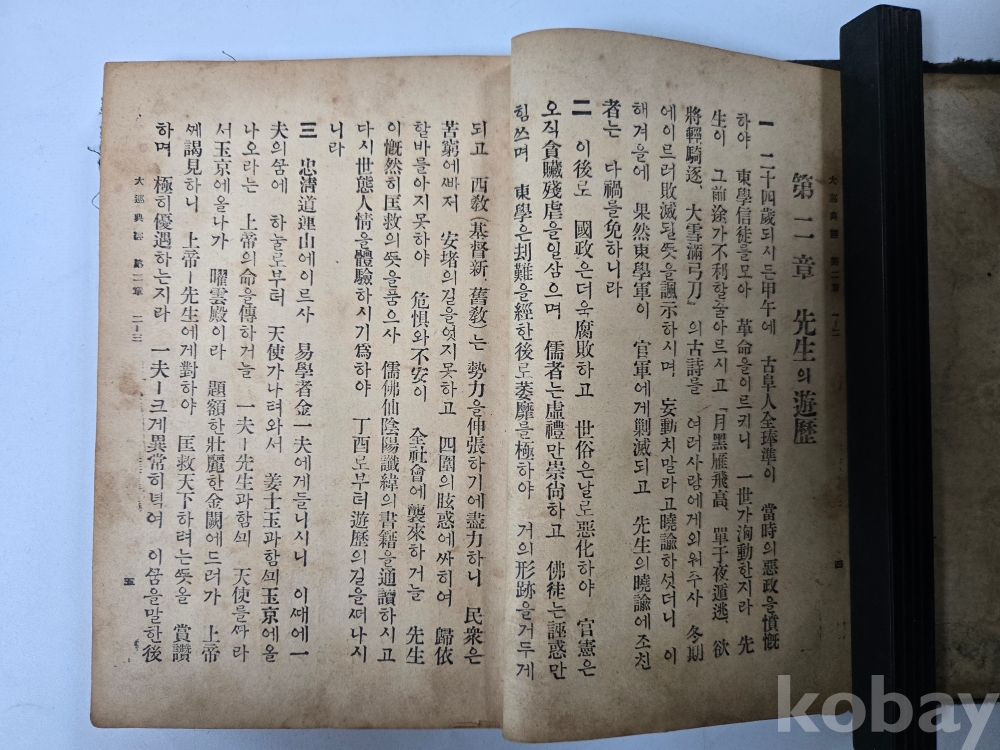 大巡典經 第二章 一—二
第二章 先生의遊歷
一 二十四歲되시든甲午에 古阜人全琫準이 當時의惡政을憤慨
하야 東學信徒를모아 革命을이르키니 一世가洶動한지라 先
生이 그前途가不利할줄아르시고 『月黑雁飛高、單于夜遁逃、欲
將輕騎逐、大雪滿弓刀』의古詩를 여러사람에게외워주사 冬期
에이르러敗滅될뜻을諷示하시며 妄動치말라고曉諭하섯더니 이
해겨을에 果然東學軍이 官軍에게剿滅되고 先生의曉諭에조친
者는 다禍를免하니라
二 이後로 國政은더욱腐敗하고 世俗은날로惡化하야 官憲은
오직貪贓殘虐을일삼으며 儒者는虛禮만崇尙하고 佛徒는誣惑만
힘쓰며 東學은刦難을經한後로萎靡를極하야 거의形跡을거두게
四
되고 西敎(基督新 舊敎)는 勢力을伸張하기에盡力하니 民衆은
苦窮에빠저 安堵의길을엇지못하고 四圍의眩惑에싸히여 歸依
할바를아지못하야 危惧와不安이 全社會에襲來하거늘 先生
이慨然히匡救의뜻을품으사 儒佛仙陰陽讖緯의書籍을通讀하시고
다시世態人情을體驗하시기爲하야 丁酉로부터遊歷의길을떠나시
니라
三 忠淸道連山에이르사 易學者金一夫에게들니시니 이때에一
夫의꿈에 하눌로부터 天使가나려와서 姜士玉과함께玉京에올
나오라는 上帝의命을傳하거늘 一夫ㅣ先生과함께 天使를따라
서玉京에올나가 曜雲殿이라 題額한壯麗한金闕에드러가 上帝
께謁見하니 上帝ㅣ先生에게對하야 匡救天下하려는뜻을 賞讚
하며 極히優遇하는지라 一夫ㅣ크게異常히녁여 이꿈을말한後
大巡典經 第二章 二—三
五
kobay